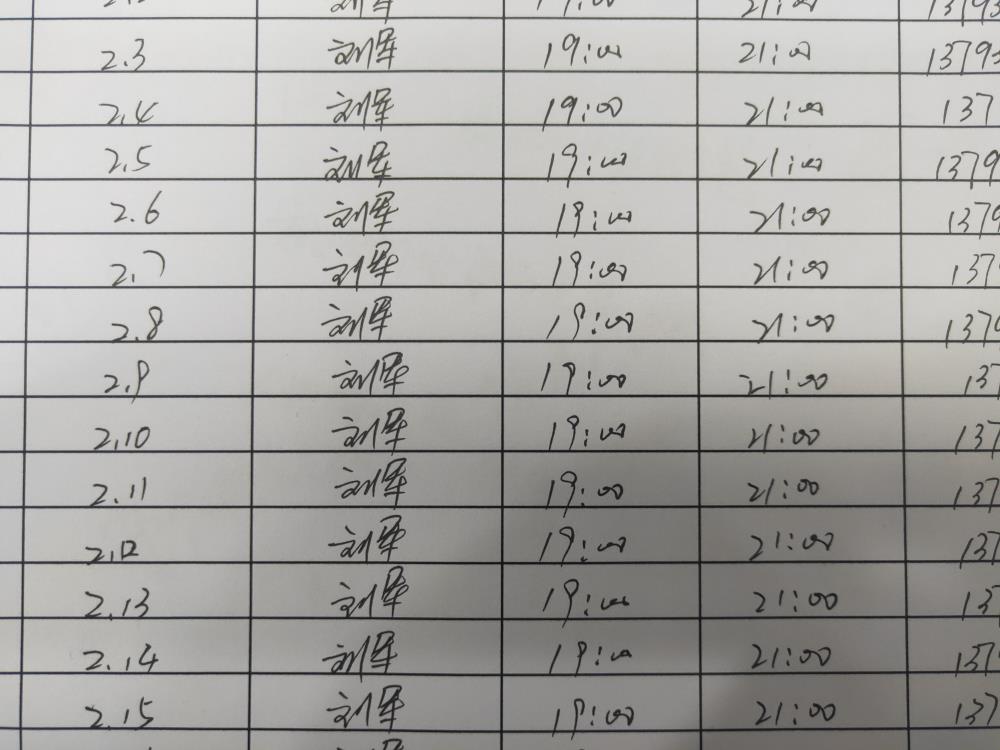 刘军 19:00 21:00 13793
2.3 刘军 19:00 21:00 1379
2.4 刘军 19:00 21:00 137
2.5 刘军 19:00 21:00 1379
2.6 刘军 19:00 21:00 1379
2.7 刘军 19:00 21:00 137
2.8 刘军 19:00 21:00 1379
2.9 刘军 19:00 21:00 137
2.10 刘军 19:00 21:00 137
2.11 刘军 19:00 21:00 137
2.12 刘军 19:00 21:00 137
2.13 刘军 19:00 21:00 13
2.14 刘军 19:00 21:00 137
2.15 刘军 19:00 21:00 137